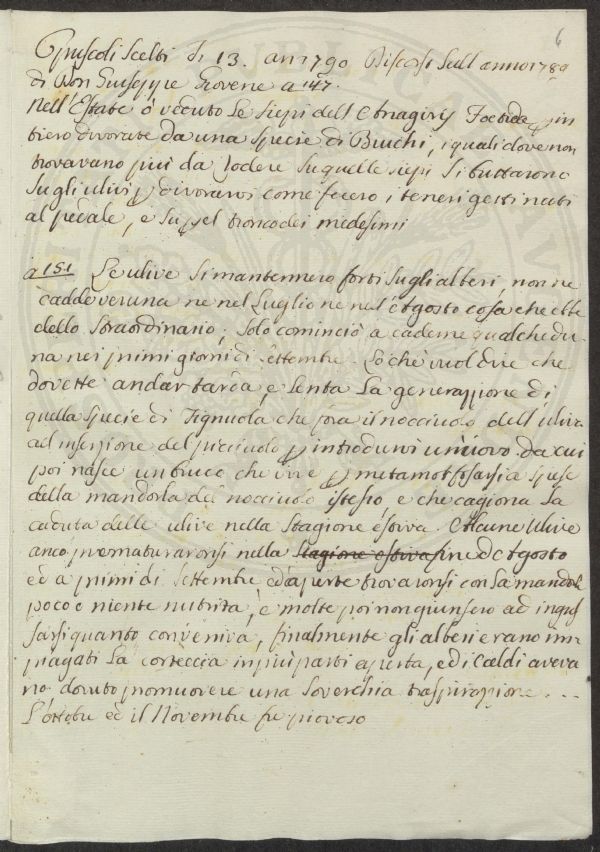 6
Opuscoli Scelti di 13. an 1790 Discorsi Sull anno 1789
di Don Giuseppe Giovene a 147.
Nell'Estate ò veduto Le siepi dell Anagiris Foetida in
tiero divorate da una Specie di Bruchi, i quali dove non
trovavano più da rodere su quelle siepi Si buttarono
Sugli ulivi p divorarvi come fecero i teneri getti nati
al pedale, e Su pel tronco dei medesimi
a 151 Le ulive Si mantennero forti Sugli alberi, non ne
cadde veruna ne nel Luglio ne nel Agosto cosa che ebbe
dello Straordinario; Solo cominciò a caderne qualchedu
na nei primi giorni di Settembre. Lo che vuol dire che
dovette andar tarda, e Lenta La generazione di
quella Specie di Tignuola che fora il nocciuolo dell'uliva
ad inserzione del picciuolo p introdurvi un'uovo da cui
poi nasce un bruco che vive p metamorfosarsi a Spese
della mandorla del nocciuolo istesso e che cagiona La
caduta delle ulive nella Stagione estiva. Alcune Ulive
anco prematuraronsi nella Stagione estiva fine d'Agosto
ed a primi di Settembre ed aperte trovaronsi con La mandorla
poco e niente nutrita, e molte poi non giunsero ad ingros
sarsi quanto conveniva, finalmente gli alberi erano im
piagati La corteccia in più parti aperta, ed i Caldi aveva
no dovuto promuovere una Soverchia traspirazione ...
L'ottobre ed il Novembre fu piovoso